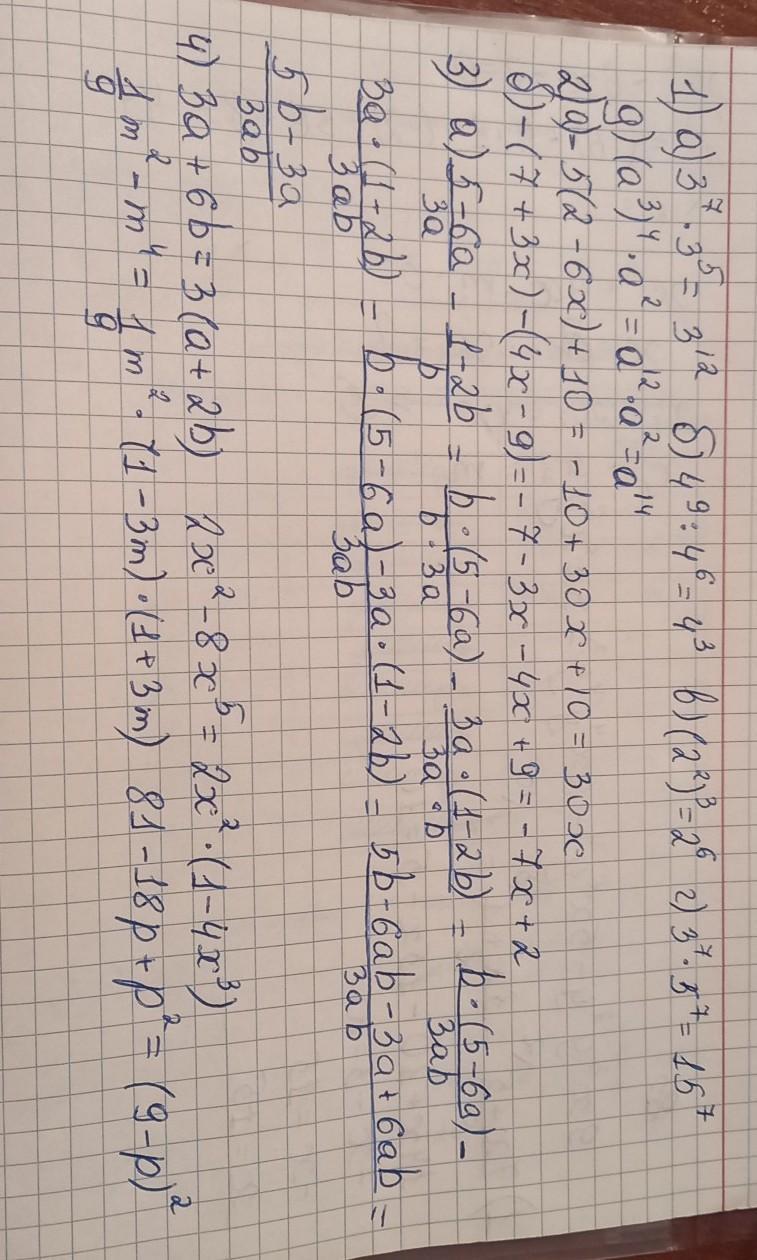 1) а) 3⁷ · 3⁵ = 3¹² б) 4⁹ : 4⁶ = 4³ в) (2²)³ = 2⁶ г) 3⁷ · 5⁷ = 15⁷
д) (a³)⁴ · a² = a¹² · a² = a¹⁴
2) а) - 5(2 - 6x) + 10 = - 10 + 30x + 10 = 30x
б) - (7 + 3x) - (4x - 9) = - 7 - 3x - 4x + 9 = - 7x + 2
3) а) (5 - 6a)/(3a) - (1 - 2b)/b = (b · (5 - 6a))/(b · 3a) - (3a · (1 - 2b))/(3a · b) = (b · (5 - 6a))/(3ab) -
(3a · (1 - 2b))/(3ab) = (b · (5 - 6a) - 3a · (1 - 2b))/(3ab) = (5b - 6ab - 3a + 6ab)/(3ab) =
(5b - 3a)/(3ab)
4) 3a + 6b = 3(a + 2b) 2x² - 8x⁵ = 2x² · (1 - 4x³)
1/9 m² - m⁴ = 1/9 m² · (1 - 3m) · (1 + 3m) 81 - 18p + p² = (9 - p)²